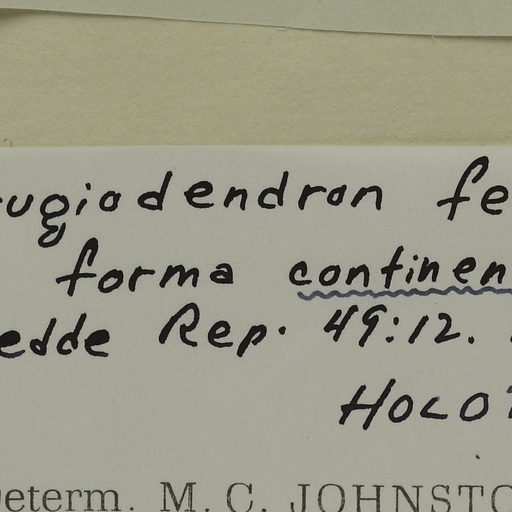 rugiodendron fe
forma continen
edde Rep. 49:12.
HOLOT
Determ. M. C. JOHNSTO